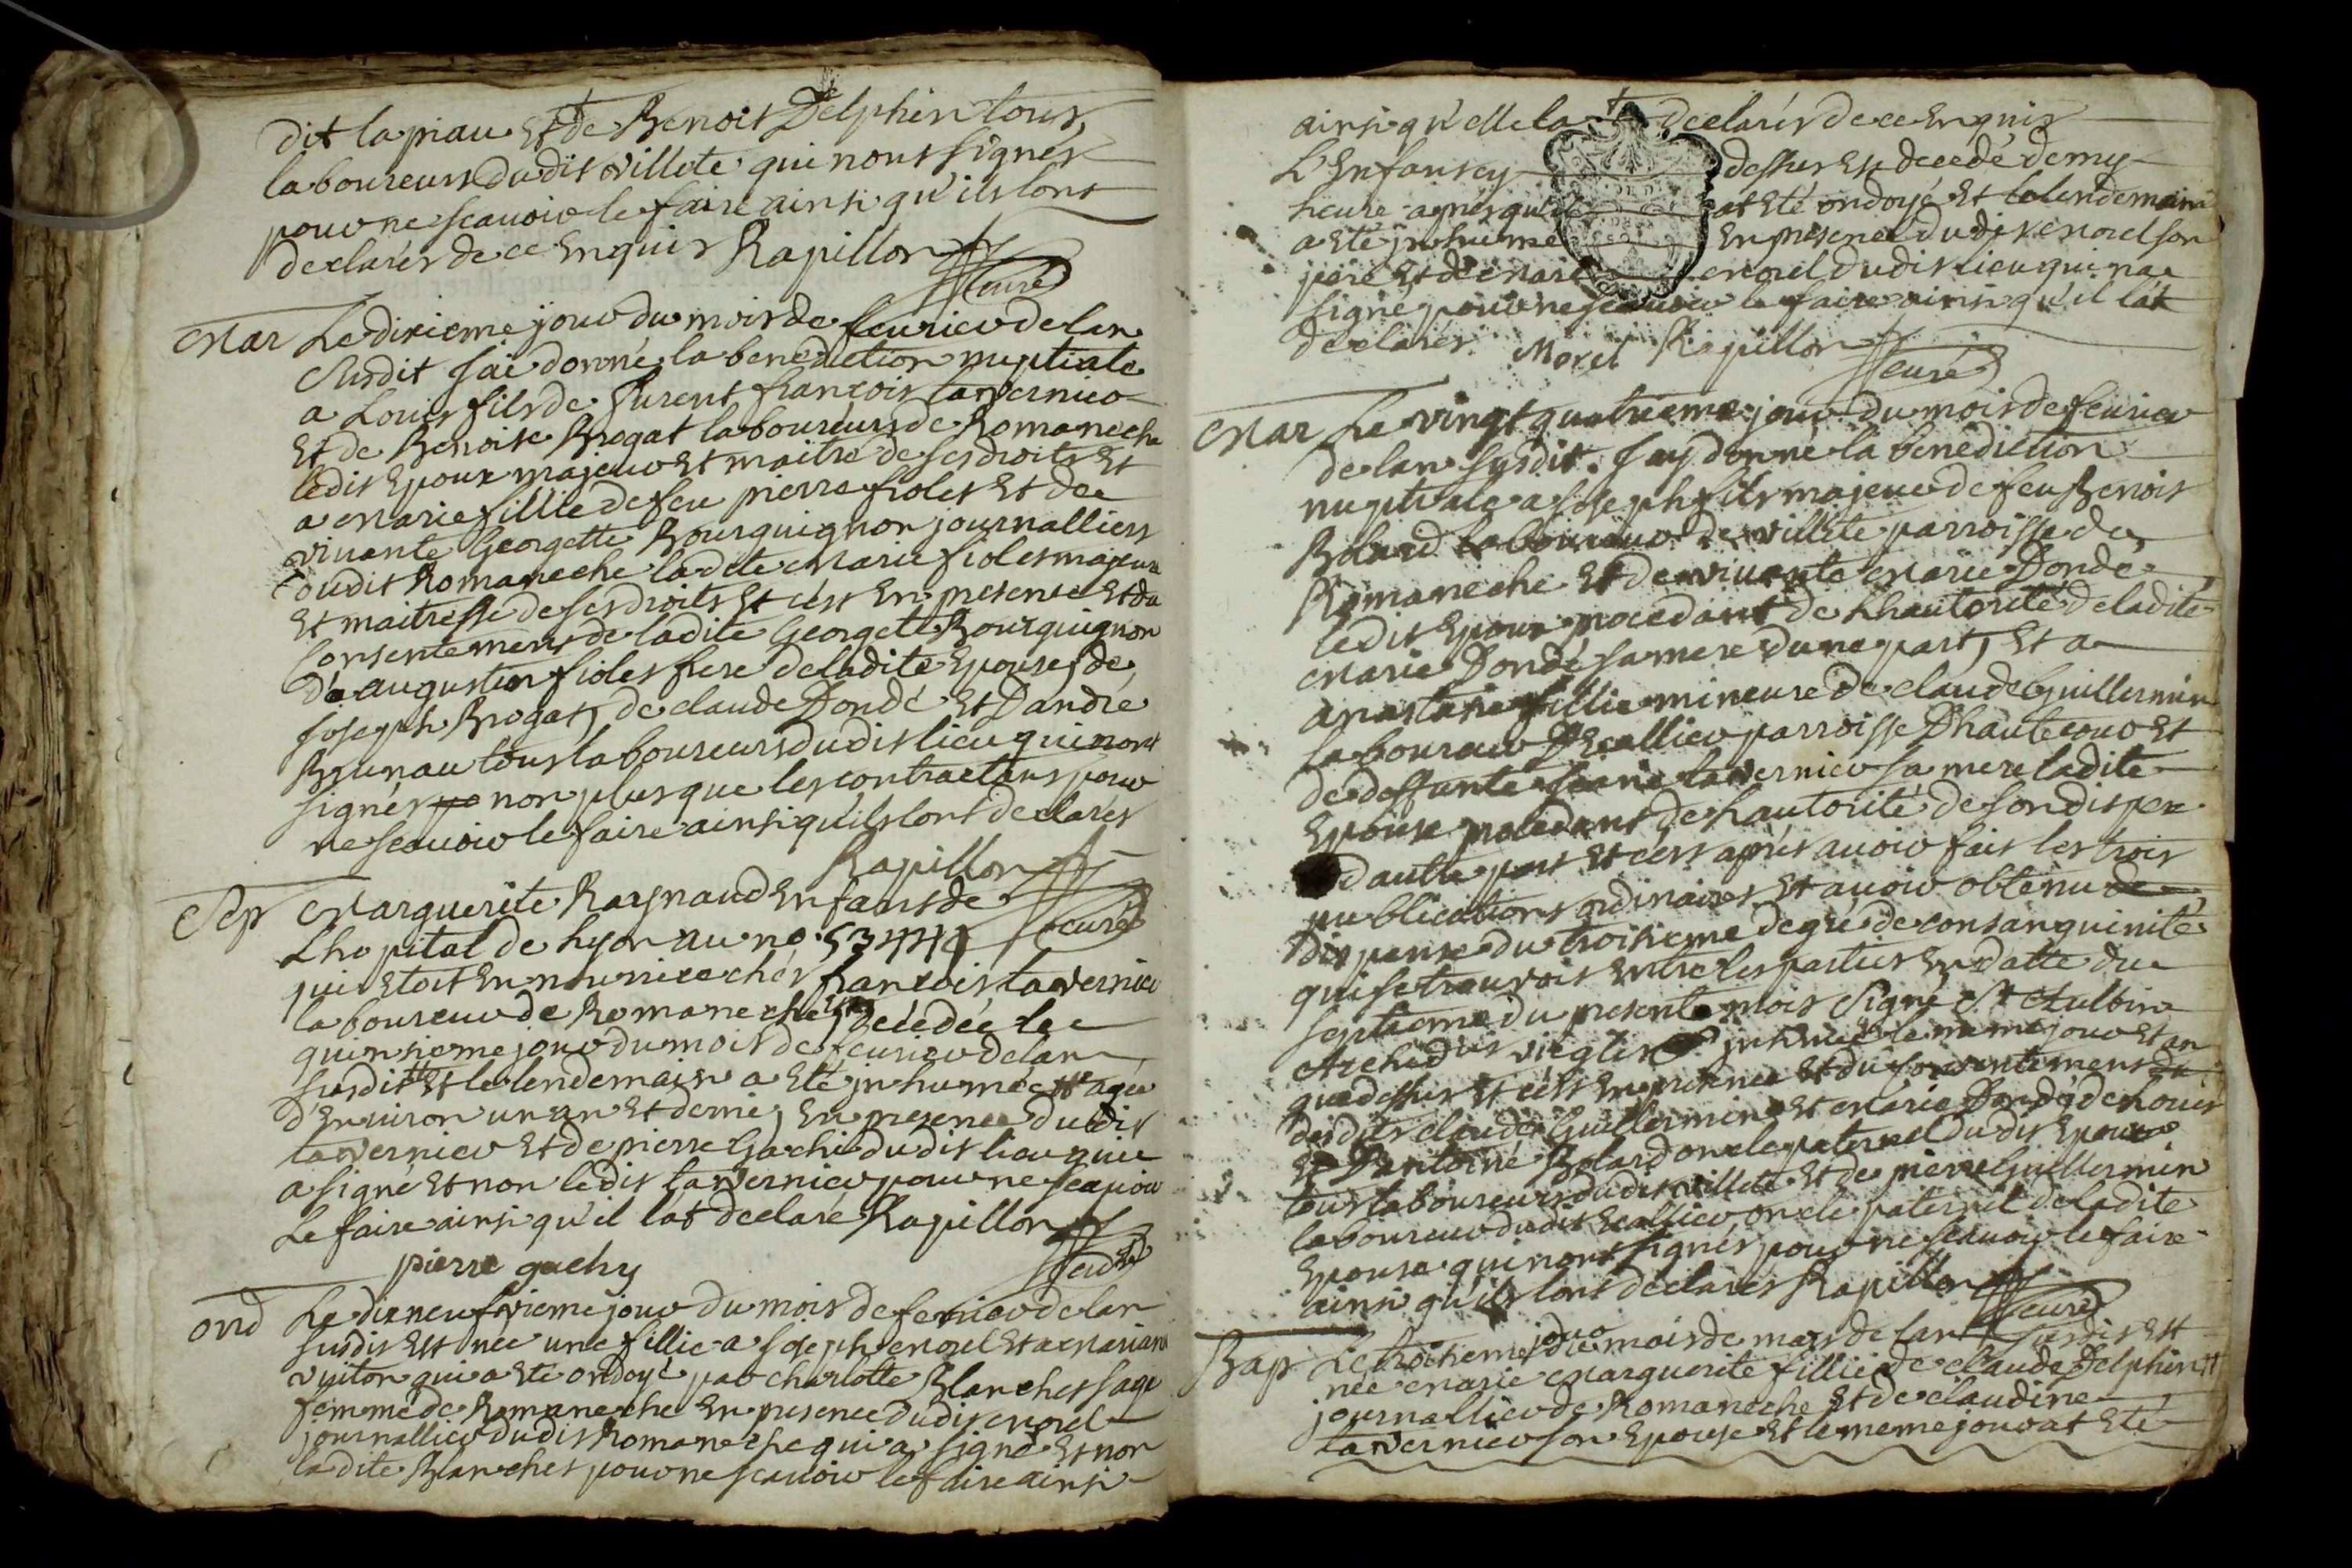 dit lapiau Et de Benoit Delphin tous
laboureurs dudit villete qui nont signés
pour ne scauoir le faire ainsi qu'ils lont
declarés de ce Enquis Rapillon
curé
Mar Le dixieme jour du mois de feurier de lan
susdit jai donné la benediction nuptiale
a Louis fils de Jurent françois tavernier
Et de Benoite Brogat laboureurs de Romaneche
ledit Epoux majeur Et maitre de ses droits Et
a Marie fillie de feu pierre fioles Et de
viuante Georgette Bourguignon journalliers
audit Romaneche ladite Marie fioles majeure
Et maitresse de ses droits Et c'est En presence Et du
consentement de ladite Georgette Bourguignon
de augustin fioles frere de ladite Epouse, de
Joseph Brogat, de claude Dondé Et Dandré
Brunau tous laboureurs dudit lieu qui nont
signés non plus que les contractans pour
ne scauoir le faire ainsi qu'ils lont declarés
Rapillon
curé
Sep Marguerite Raynaud Enfant de
Lhopital de Lyon au no.
qui Etoit En nourrice chés françois tavernier
laboureur de Romaneche Est decedée le
quinsieme jour du mois de feurier de lan
susdit Et le lendemain a Eté inhumée agée
d'Enuiron un an Et demi, En presence dudit
tavernier Et de pierre Gachi dudit lieu qui
a signé Et non ledit tavernier pour ne scauoir
Le faire ainsi qu'il lat declaré Rapillon
pierre gachy
curé
ond Le dixneufvieme jour du mois de feurier de lan
susdit Est née une fillie a Joseph Morel Et a Mariane
vuiton qui a Eté ondoyé par charlotte Blanchet sage
femme de Romaneche En presence dudit Morel
journallier dudit Romaneche qui a signé Et non
ladite Blanchet pour ne scauoir le faire ainsi
ainsi qu'elle la declarés de ce Enquis
L'Enfant cy dessus Est decedé demy
heure apres qu'il at Eté ondoyé Et le lendemain
a Eté inhumé En presence dudit Morel son
pere Et de Morel dudit lieu qui na
signé pour ne scauoir le faire ainsi qu'il lat
declarés Morel Rapillon
curé
Mar Le vingt quatrieme jour du mois de feurier
de lan susdit. Jay donné la benediction
nuptiale a Joseph fils majeur de feu Benoit
Bolard laboureur de villete parroisse de
Romaneche Et de viuante Marie Dondé
ledit Epoux procedant de Lhautorité de ladite
Marie Dondé sa mere dune part, Et a
anastasie fillie mineure de claude Guillermin
laboureur D'Ecallier parroisse Dhautecour Et
de deffunte tavernier sa mere ladite
Epouse procedant de Lhautorité de son dit pere
dautre part Et c'est aprés auoir fait les trois
publications ordinaires Et auoir obtenu
dispense du troisieme degré de consanguinité
qui se trouvoit Entre les parties En datte du
septieme du present mois Signé St Aulbin
Archid insinué le meme jour Et an
que dessus Et c'est En presence Et du consentement
desdits claude Guillermin Et Marie Dondé de Louis
Et Dantoine Bolard oncle paternel dudit Epoux
tous laboureurs dudit villete Et de pierre Guillermin
laboureur dudit Ecallier oncle paternel de ladite
Epouse qui nont signés pour ne scauoir le faire
ainsi qu'ils lont declarés Rapillon
curé
Bap Le troisieme jour du mois de mars de lan susdit Est
née Marie Marguerite fillie de claude Delphin
journallier de Romaneche Et de claudine
tavernier son Epouse Et le meme jour at Eté